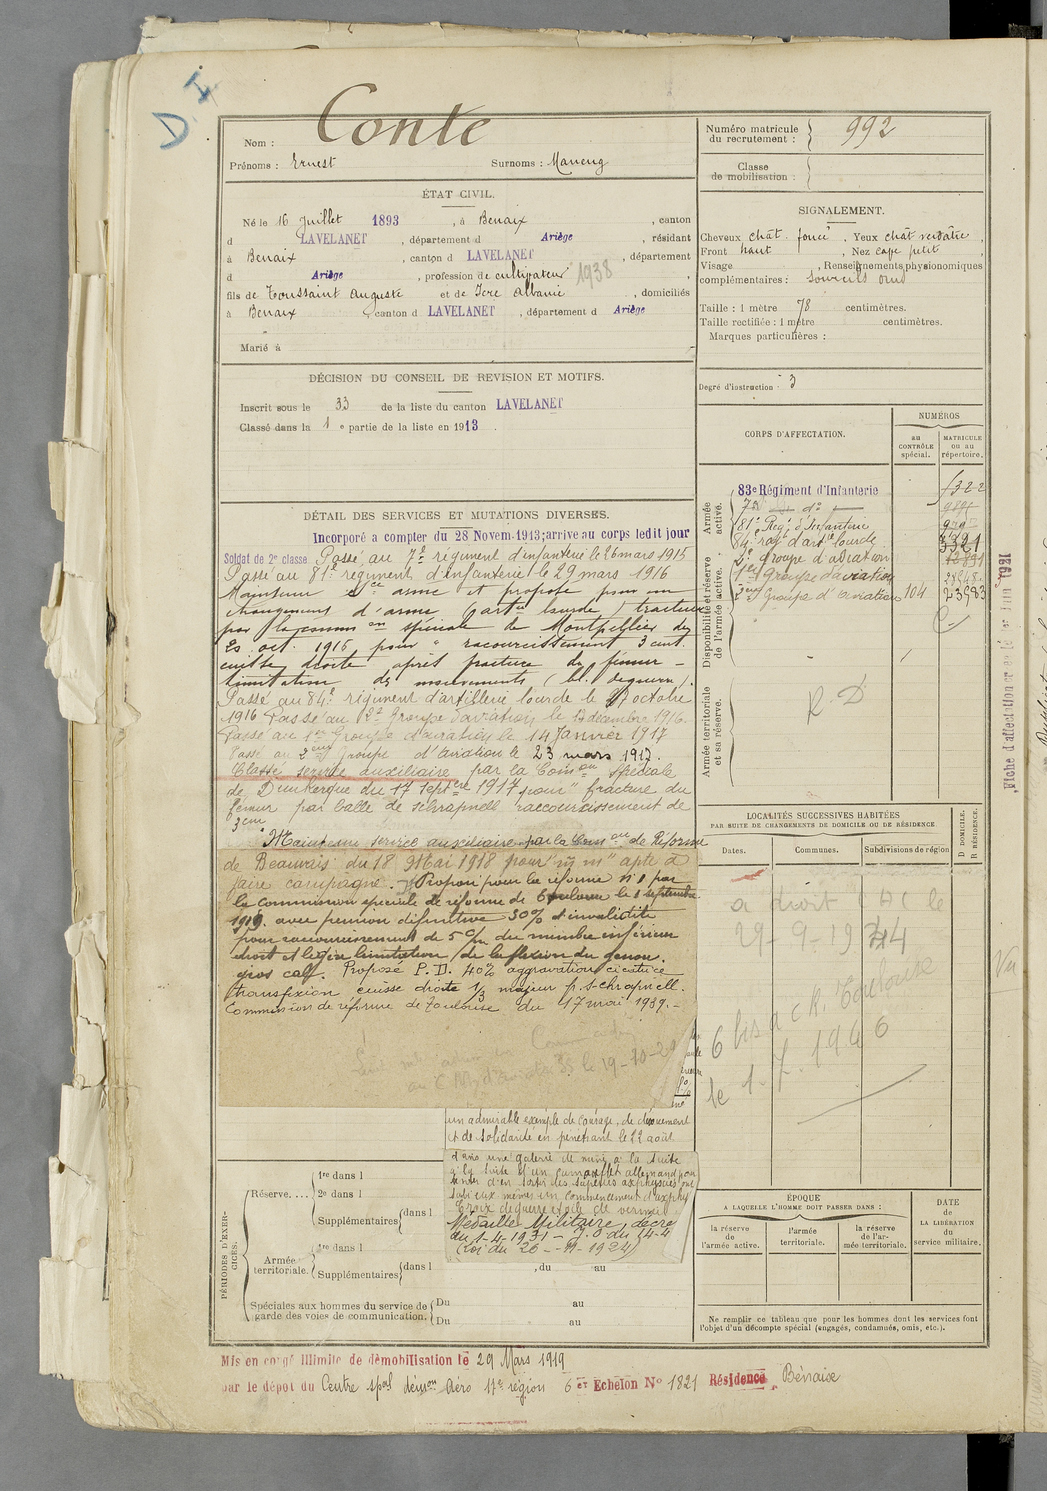 D I
Nom : Conte
Prénoms : Ernest Surnoms :
Numéro matricule du recrutement : 992
Classe de mobilisation :
ÉTAT CIVIL.
Né le 16 Juillet 1893, à Benaix, canton
d LAVELANET, département d Ariège, résidant
à Benaix, canton d LAVELANET, département
d Ariège, profession de cultivateur 1938
fils de Toussaint Auguste et de Icre Albanie, domiciliés
à Benaix canton d LAVELANET, département d Ariège
Marié à
SIGNALEMENT.
Cheveux chât. foncé. Yeux chât verdâtre,
Front haut, Nez petit,
Visage , Renseignements physionomiques
complémentaires : Sourcils
Taille : 1 mètre 78 centimètres.
Taille rectifiée : 1 mètre centimètres.
Marques particulières :
Degré d'instruction : 3
DÉCISION DU CONSEIL DE REVISION ET MOTIFS.
Inscrit sous le 33 de la liste du canton LAVELANET
Classé dans la 1e partie de la liste en 1913.
CORPS D'AFFECTATION.
NUMÉROS
au CONTRÔLE spécial.
MATRICULE ou au répertoire.
Armée active.
Disponibilité et réserve de l'armée active.
Armée territoriale et sa réserve.
83e Régiment d'Infanterie 1322
7e do
81e Reg. d'Infanterie
84e reg d'art. lourde
2e groupe d'aviation
1er Groupe d'aviation
2ème Groupe d'aviation 104 23983
R. D
Fiche d'affectation créée le Juin 1921
DÉTAIL DES SERVICES ET MUTATIONS DIVERSES.
Incorporé a compter du 28 Novem. 1913; arrivé au corps ledit jour
Soldat de 2e classe Passé au 7e régiment d'infanterie le 26 mars 1915
Passé au 81e régiment d'infanterie le 29 mars 1916
Maintenu Sce armé et proposé pour un
changement d'arme (artie lourde) tracteurs
par la comm on spéciale de Montpellier du
oct. 1916 pour raccourcissement 3 cent.
cuisse droite après fracture du fémur -
limitation des mouvements (bl. de guerre).
Passé au 84e régiment d'artillerie lourde le 27 octobre
1916 Passé au 2e Groupe d'aviation, le 13 décembre 1916.
Passé au 1er Groupe d'aviation le 14 Janvier 1917
Passé au 2ème Groupe d'aviation le 23 mars 1917.
Classé service auxiliaire par la Comon Spéciale
de Dunkerque du 17 Septbre 1917 pour " fracture du
fémur par balle de schrapnell raccourcissement de
3cm
Maintenu service auxiliaire par la Comon de Réforme
de Beauvais du 18 Mai 1918 pour "m m" apte à
faire campagne. Proposé pour la réforme n° 1 par
la commission spéciale de réforme de Toulouse le septembre
1919. avec pension définitive 30% d'invalidité
pour raccourcissement de 5 c/m du membre inférieur
droit et légère limitation de la flexion du genou.
gros cal. Proposé P.D. 40% aggravation cicatrice
transfixion cuisse droite 1/3 majeur p. schrapnell.
Commission de réforme de Toulouse du 17 mai 1939.-
le 19-10-29
un admirable exemple de courage, de dévouement
et de solidarité en pénétrant le 22 août
dans une galerie de mine à la suite
à la suite d'un camouflet allemand pour
tenter d'en sortir les sapeurs asphyxiés ont
subi eux mêmes un commencement d'asphyx
Croix de guerre étoile de vermeil
Médaille Militaire, décret
du 1-4-1931 - J.O du 14-4
(Loi du 26--11-1924)
LOCALITÉS SUCCESSIVES HABITÉES
PAR SUITE DE CHANGEMENTS DE DOMICILE OU DE RÉSIDENCE.
Dates. Communes. Subdivisions de région
D DOMICILE. R RÉSIDENCE.
a droit CAC le
29-9-1944
6 bis a CR. Toulouse
le 1-7-1946
Vu
PÉRIODES D'EXERCICES.
Réserve.... 1re dans l
2e dans l
Supplémentaires dans l
Armée territoriale. 1re dans l
Supplémentaires dans l , du au
Spéciales aux hommes du service de garde des voies de communication. Du au
Du au
ÉPOQUE
A LAQUELLE L'HOMME DOIT PASSER DANS :
la réserve de l'armée active.
l'armée territoriale.
la réserve de l'armée territoriale.
DATE de LA LIBÉRATION du service militaire.
Ne remplir ce tableau que pour les hommes dont les services font
l'objet d'un décompte spécial (engagés, condamnés, omis, etc.).
Mis en congé illimité de démobilisation le 29 Mars 1919
par le dépôt du Centre spal démon Aéro 17e région 6e Echelon No 1821 Résidence Bénaise